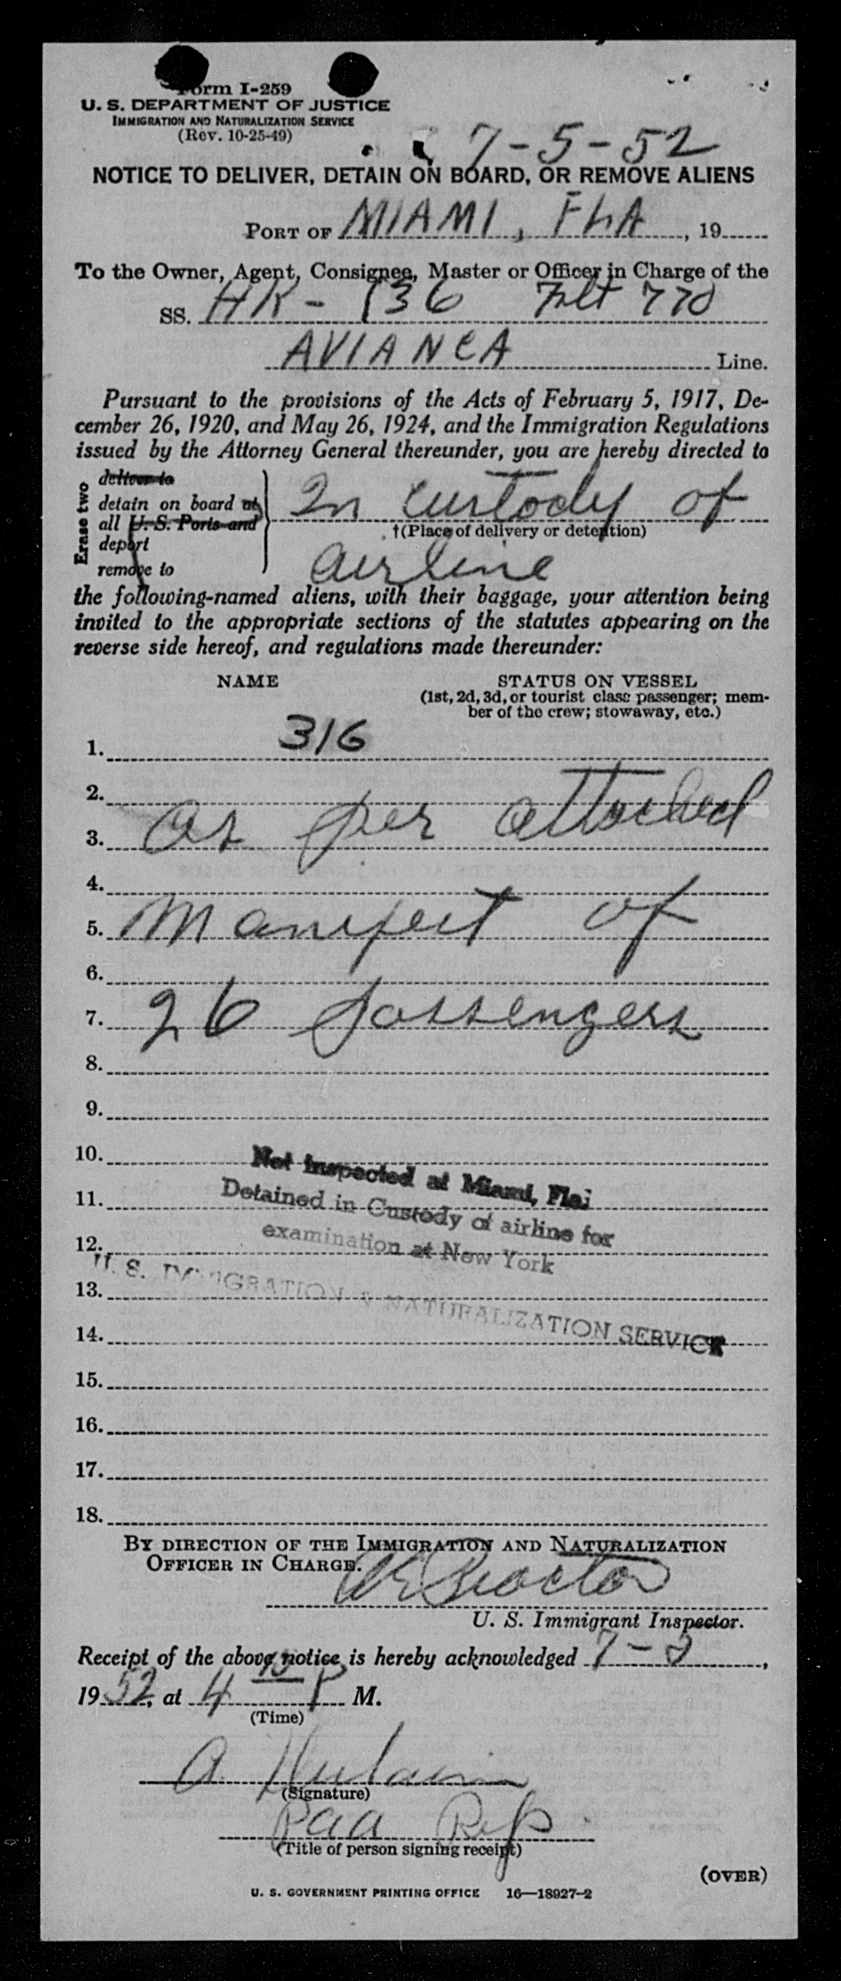 Form I-259
U. S. DEPARTMENT OF JUSTICE
IMMIGRATION AND NATURALIZATION SERVICE
(Rev. 10-25-49)
7-5-52
NOTICE TO DELIVER, DETAIN ON BOARD, OR REMOVE ALIENS
PORT OF MIAMI, FLA, 19
To the Owner, Agent, Consignee, Master or Officer in Charge of the
SS. HK-136 Flt 770
AVIANCA Line.
Pursuant to the provisions of the Acts of February 5, 1917, De-
cember 26, 1920, and May 26, 1924, and the Immigration Regulations
issued by the Attorney General thereunder, you are hereby directed to
Erase two
deliver to
detain on board at
all U. S. Ports and
deport
remove to
In custody of
†(Place of delivery or detention)
airline
the following-named aliens, with their baggage, your attention being
invited to the appropriate sections of the statutes appearing on the
reverse side hereof, and regulations made thereunder:
NAME STATUS ON VESSEL
(1st, 2d, 3d, or tourist class passenger; mem-
ber of the crew; stowaway, etc.)
1. 316
2.
3. as per attached
4.
5. Manifest of
6.
7. 26 passengers
8.
9.
10.
Not Inspected at Miami, Fla.
11.
Detained in Custody of airline for
12.
examination at New York
13.
U. S. IMMIGRATION & NATURALIZATION SERVICE
14.
15.
16.
17.
18.
BY DIRECTION OF THE IMMIGRATION AND NATURALIZATION
OFFICER IN CHARGE.
Proctor
U. S. Immigrant Inspector.
Receipt of the above notice is hereby acknowledged 7-5,
1952, at 4 15 P M.
(Time)
A.
(Signature)
Paa Rep.
(Title of person signing receipt)
(OVER)
U. S. GOVERNMENT PRINTING OFFICE 16—18927-2